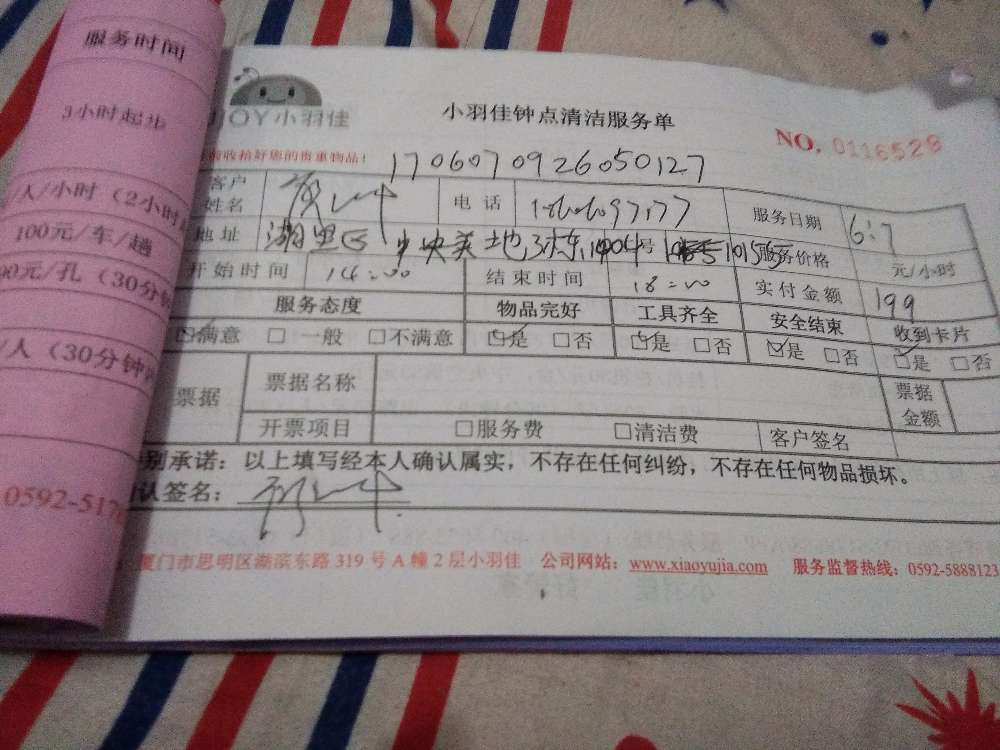 服务时间
3小时起步
人/小时（2小时
100元/车/趟
00元/孔（30分钟
/人（30分钟
0592-517
JOY小羽佳
小羽佳钟点清洁服务单
NO. 0116529
前收拾好您的贵重物品！
1706070926050127
客户姓名 电话 服务日期 6:7
地址 湖里区 服务价格 元/小时
开始时间 14:00 结束时间 18:00 实付金额 199
服务态度 物品完好 工具齐全 安全结束 收到卡片
☑满意 □一般 □不满意 ☑是 □否 ☑是 □否 ☑是 □否 ☑是 □否
票据 票据名称 票据金额
开票项目 □服务费 □清洁费 客户签名
别承诺：以上填写经本人确认属实，不存在任何纠纷，不存在任何物品损坏。
认签名：
厦门市思明区湖滨东路 319 号 A 幢 2 层小羽佳 公司网站：www.xiaoyujia.com 服务监督热线：0592-5888123